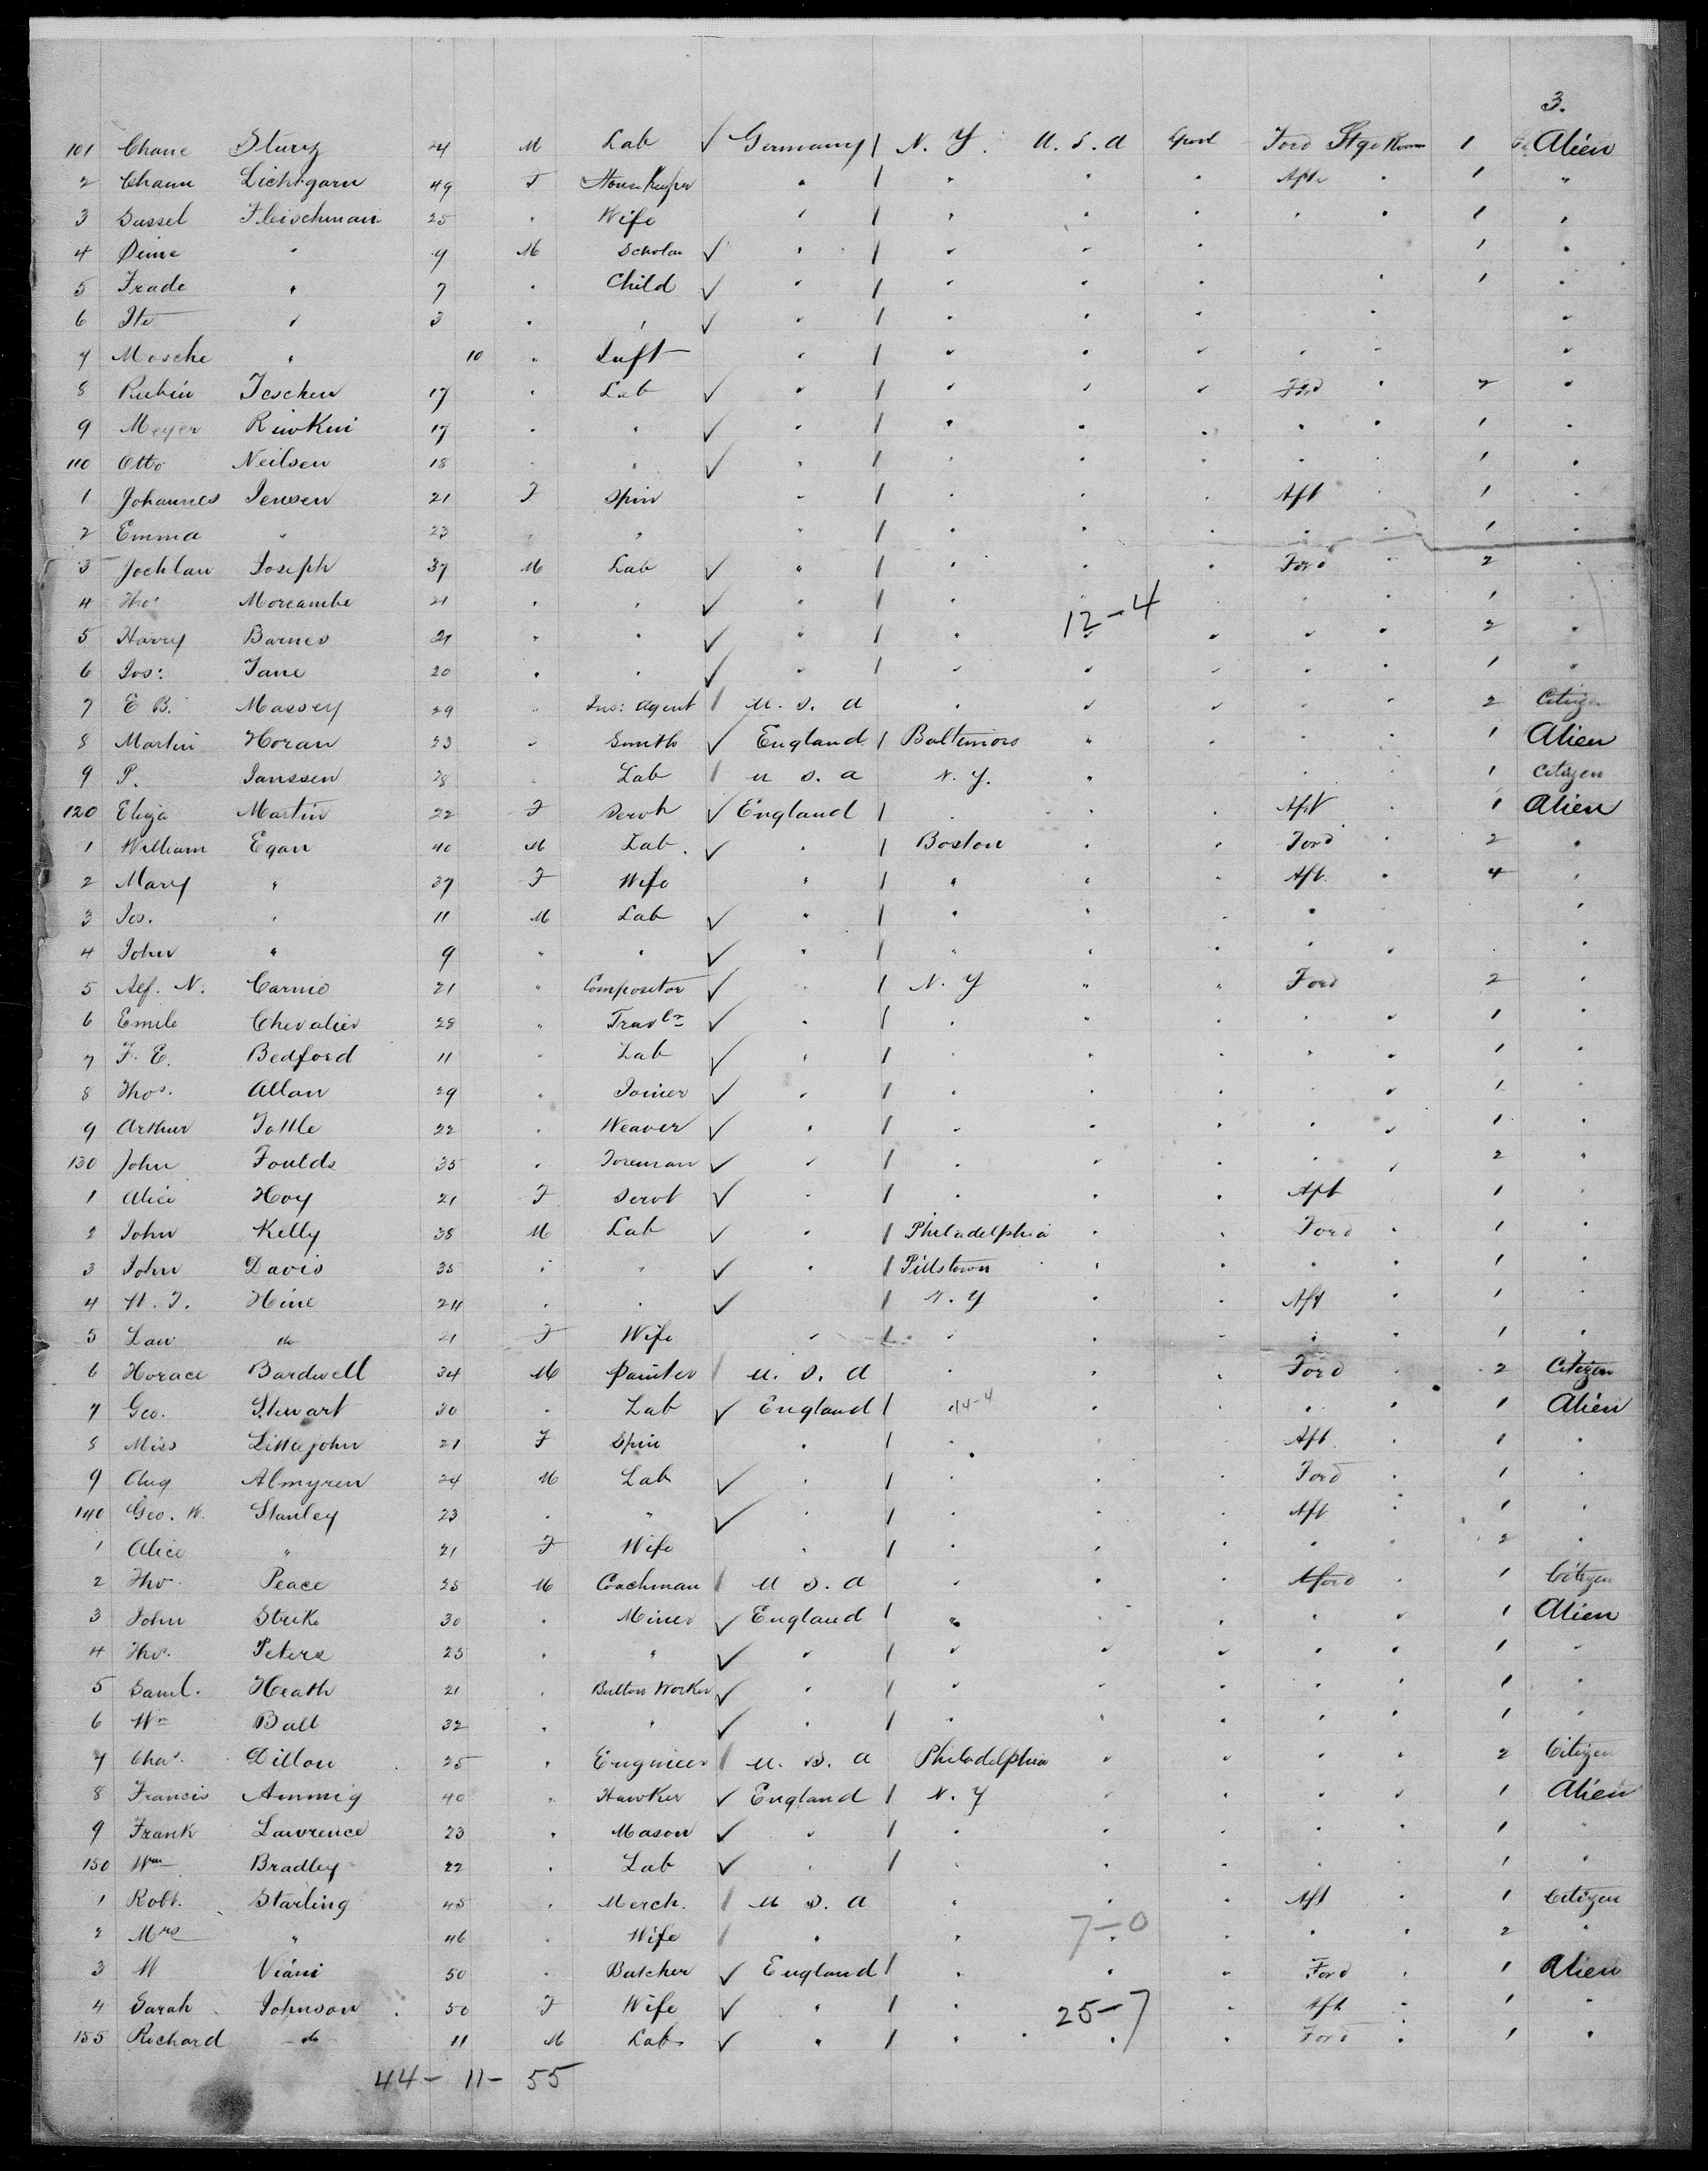 3.
101 Chane Sturz 24 M Lab ✓ Germany / N. Y. U. S. A Good Ford Stge Room 1 Alien
2 Chann Lichtgarn 49 F HouseKeeper " / " " " Aft " 1 "
3 Sussel Fleischman 25 " Wife " / " " " " " 1 "
4 " 9 M Scholar ✓ " / " " " 1 "
5 Frade " 7 " Child ✓ " / " " " " 1 "
6 Ite " 3 " " ✓ " / " " " " "
7 Mosche " 10 " Inft " / " " " " " "
8 Rubin Teschen 17 " Lab ✓ " / " " " Ford " 2 "
9 Meyer RiwKin 17 " " ✓ " / " " " " " 1 "
110 Otto Neilsen 18 " " ✓ " / " " " " 1 "
1 Johannes Jensen 21 F Spin " / " " " Aft " 1 "
2 Emma " 23 " " " / " " " " " 1 "
3 Jochlan Joseph 37 M Lab ✓ " / " " " Ford " 2 "
4 Thos Morcambe 21 " " ✓ " / " 12-4 " " " 1
5 Harry Barnes 21 " " ✓ " / " " " " " 2 "
6 Jos: Jane 20 " " ✓ " / " " " " " 1 "
7 E B. Massey 29 " Ins: Agent / U. S. A " " " " " 2 Citizen
8 Martin Horan 23 " Smith ✓ England / Baltimore " " " " 1 Alien
9 P. Janssen 28 " Lab / U S. A N. Y. " " " 1 Citizen
120 Eliza Martin 22 F Servt ✓ England / " " " Aft " 1 Alien
1 William Egan 40 M Lab. ✓ " / Boston " " Ford " 2 "
2 Mary " 37 F Wife " / " " " Aft. " 4 "
3 Jos. " 11 M Lab ✓ " / " " " " "
4 John " 9 " " ✓ " / " " " " " "
5 Alf. N. Carnie 21 " Compositor ✓ " / N. Y " " Ford 2 "
6 Emile Chevalier 28 " Travlr ✓ " / " " " " " 1 "
7 F. E. Bedford 11 " Lab ✓ " / " " " " " 1 "
8 Thos. Allan 29 " Joiner ✓ " / " " " " " 1 "
9 Arthur Tottle 22 " Weaver ✓ " / " " " " " 1 "
130 John Foulds 35 " Foreman ✓ " / " " " " " 2 "
1 Alice Hoy 21 F Servt ✓ " / " " " Aft 1 "
2 John Kelly 38 M Lab ✓ " / Philadelphia " " Ford " 1 "
3 John Davis 35 " " ✓ " / Pittstown " " " " 1 "
4 H. J. Hine 24 " " ✓ / N. Y " " Aft " 1 "
5 Lau do 21 F Wife " / " " " " " 1 "
6 Horace Bardwell 34 M Painter / U. S. A " " " Ford " 2 Citizen
7 Geo. Stewart 30 " Lab ✓ England / 14-4 " " " " 1 Alien
8 Miss Littlejohn 21 F Spin " / " " " Aft " 1 "
9 Aug Almyren 24 M Lab ✓ " / " " " Ford " 1 "
140 Geo. W. Stanley 23 " " ✓ " / " " " Aft " 1 "
1 Alice " 21 F Wife " / " " " " " 2 "
2 Thos Peace 25 M Coachman / U S. A " " " Aford " 1 Citizen
3 John Strike 30 " Miner ✓ England / " " " " " 1 Alien
4 Thos. Peters 25 " " ✓ " / " " " " " 1 "
5 Saml. Heath 21 " Button Worker ✓ " / " " " " " 1 "
6 Wm Ball 32 " " ✓ " / " " " " " 1 "
7 Chas. Dillon 25 " Engineer / U. S. A Philadelphia " " " " 2 Citizen
8 Francis Ammig 40 " Hawker ✓ England / N. Y " " " " 1 Alien
9 Frank Lawrence 23 " Mason ✓ " / " " " " " 1 "
150 Wm Bradley 22 " Lab ✓ " / " " " " " 1 "
1 Robt. Starling 45 " Merch. / U S. A " " " Aft " 1 Citizen
2 Mrs " 46 " Wife / " " 7-0 " " " 2 "
3 M Viani 50 " Butcher ✓ England / " " " Ford " 1 Alien
4 Sarah Johnson 50 F Wife ✓ " / " 25-7 " Aft " 1 "
155 Richard do 11 M Lab ✓ " / " " " Ford " 1 "
44- 11- 55